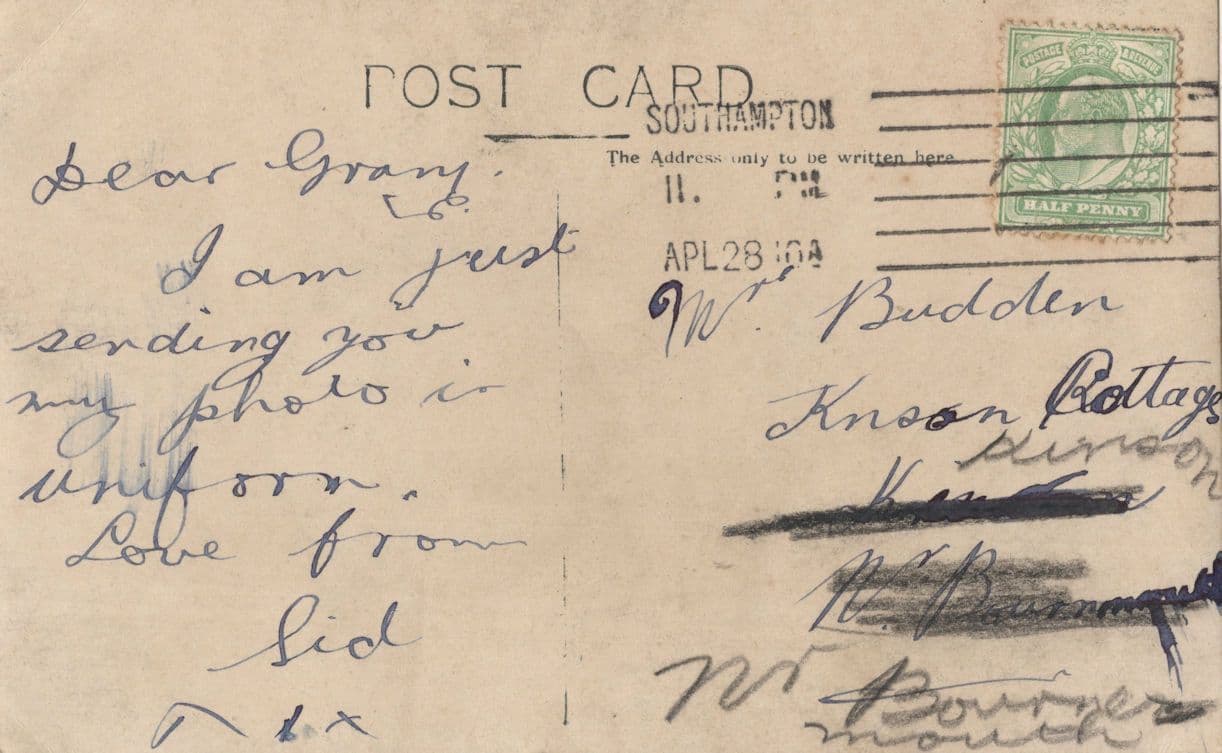 POST CARD
SOUTHAMPTON
The Address only to be written here
11. PM
APL 28 10
POSTAGE & REVENUE
HALF PENNY
Dear Grany.
I am just
sending you
my photo in
uniform.
Love from
Sid
x x
Mrs. Budden
Knson Cottage
Kinson
Nr Bournmouth
Nr Bourne
mouth